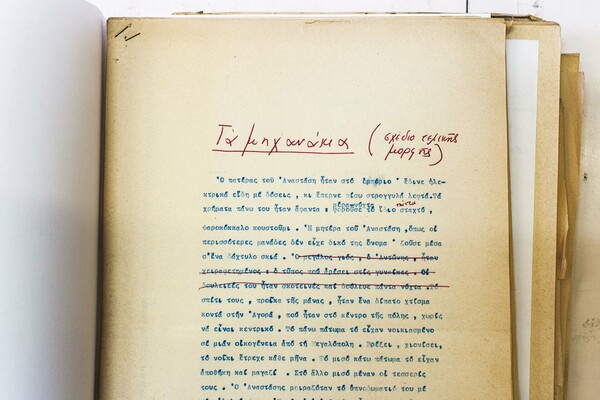 Τά μηχανάκια (σχέδιο τελικῆς
μορφῆς)
Ὁ πατέρας τοῦ Ἀναστάση ἦταν στό ἐμπόριο · ἔδινε ἠλε-
κτρικά εἴδη μέ δόσεις , κι ἔπερνε πίσω στρογγυλά λεφτά.Τά
μεροπνύχτα πάντα
χρήματα πάνω του ἦταν ἄφαντα · φοροῦσε τό ἴδιο σταχτύ ,
ψαροκόκκαλο κουστοῦμι . Ἡ μητέρα τοῦ Ἀναστάση ,ὅπως οἱ
περισσότερες μανάδες δέν εἶχε δικό της ὄνομα · ζοῦσε μέσα
σ'ἕνα δάχτυλο σκιά . Ὁ μεγάλος γυιός , ὁ Ἀντώνης , ἦταν
χειραφετημένος : ὁ τύπος πού ἀρέσει στίς γυναῖκες . Οἱ
δουλειές του ἦταν σκοτεινές καί δούλευε πάντα νύχτα .Τό
σπίτι τους , προῖκα τῆς μάνας , ἦταν ἕνα δίπατο χτίσμα
κοντά στήν Ἀγορά , πού ἦταν στό κέντρο τῆς πόλης , χωρίς
νά εἶναι κεντρικό . Τό πάνω πάτωμα τό εἶχαν νοικιασμένο
σέ μιάν οἰκογένεια ἀπό τή Μεγαλόπολη . Βρέξει , χιονίσει,
τό νοίκι ἔτρεχε κάθε μῆνα . Τό μισό κάτω πάτωμα τό εἶχαν
ἀποθήκη καί μαγαζί . Στό ἄλλο μισό μέναν οἱ τεσσερίς
τους . Ὁ Ἀναστάσης μοιραζόταν τό ὑπνοδωμάτιό του μέ